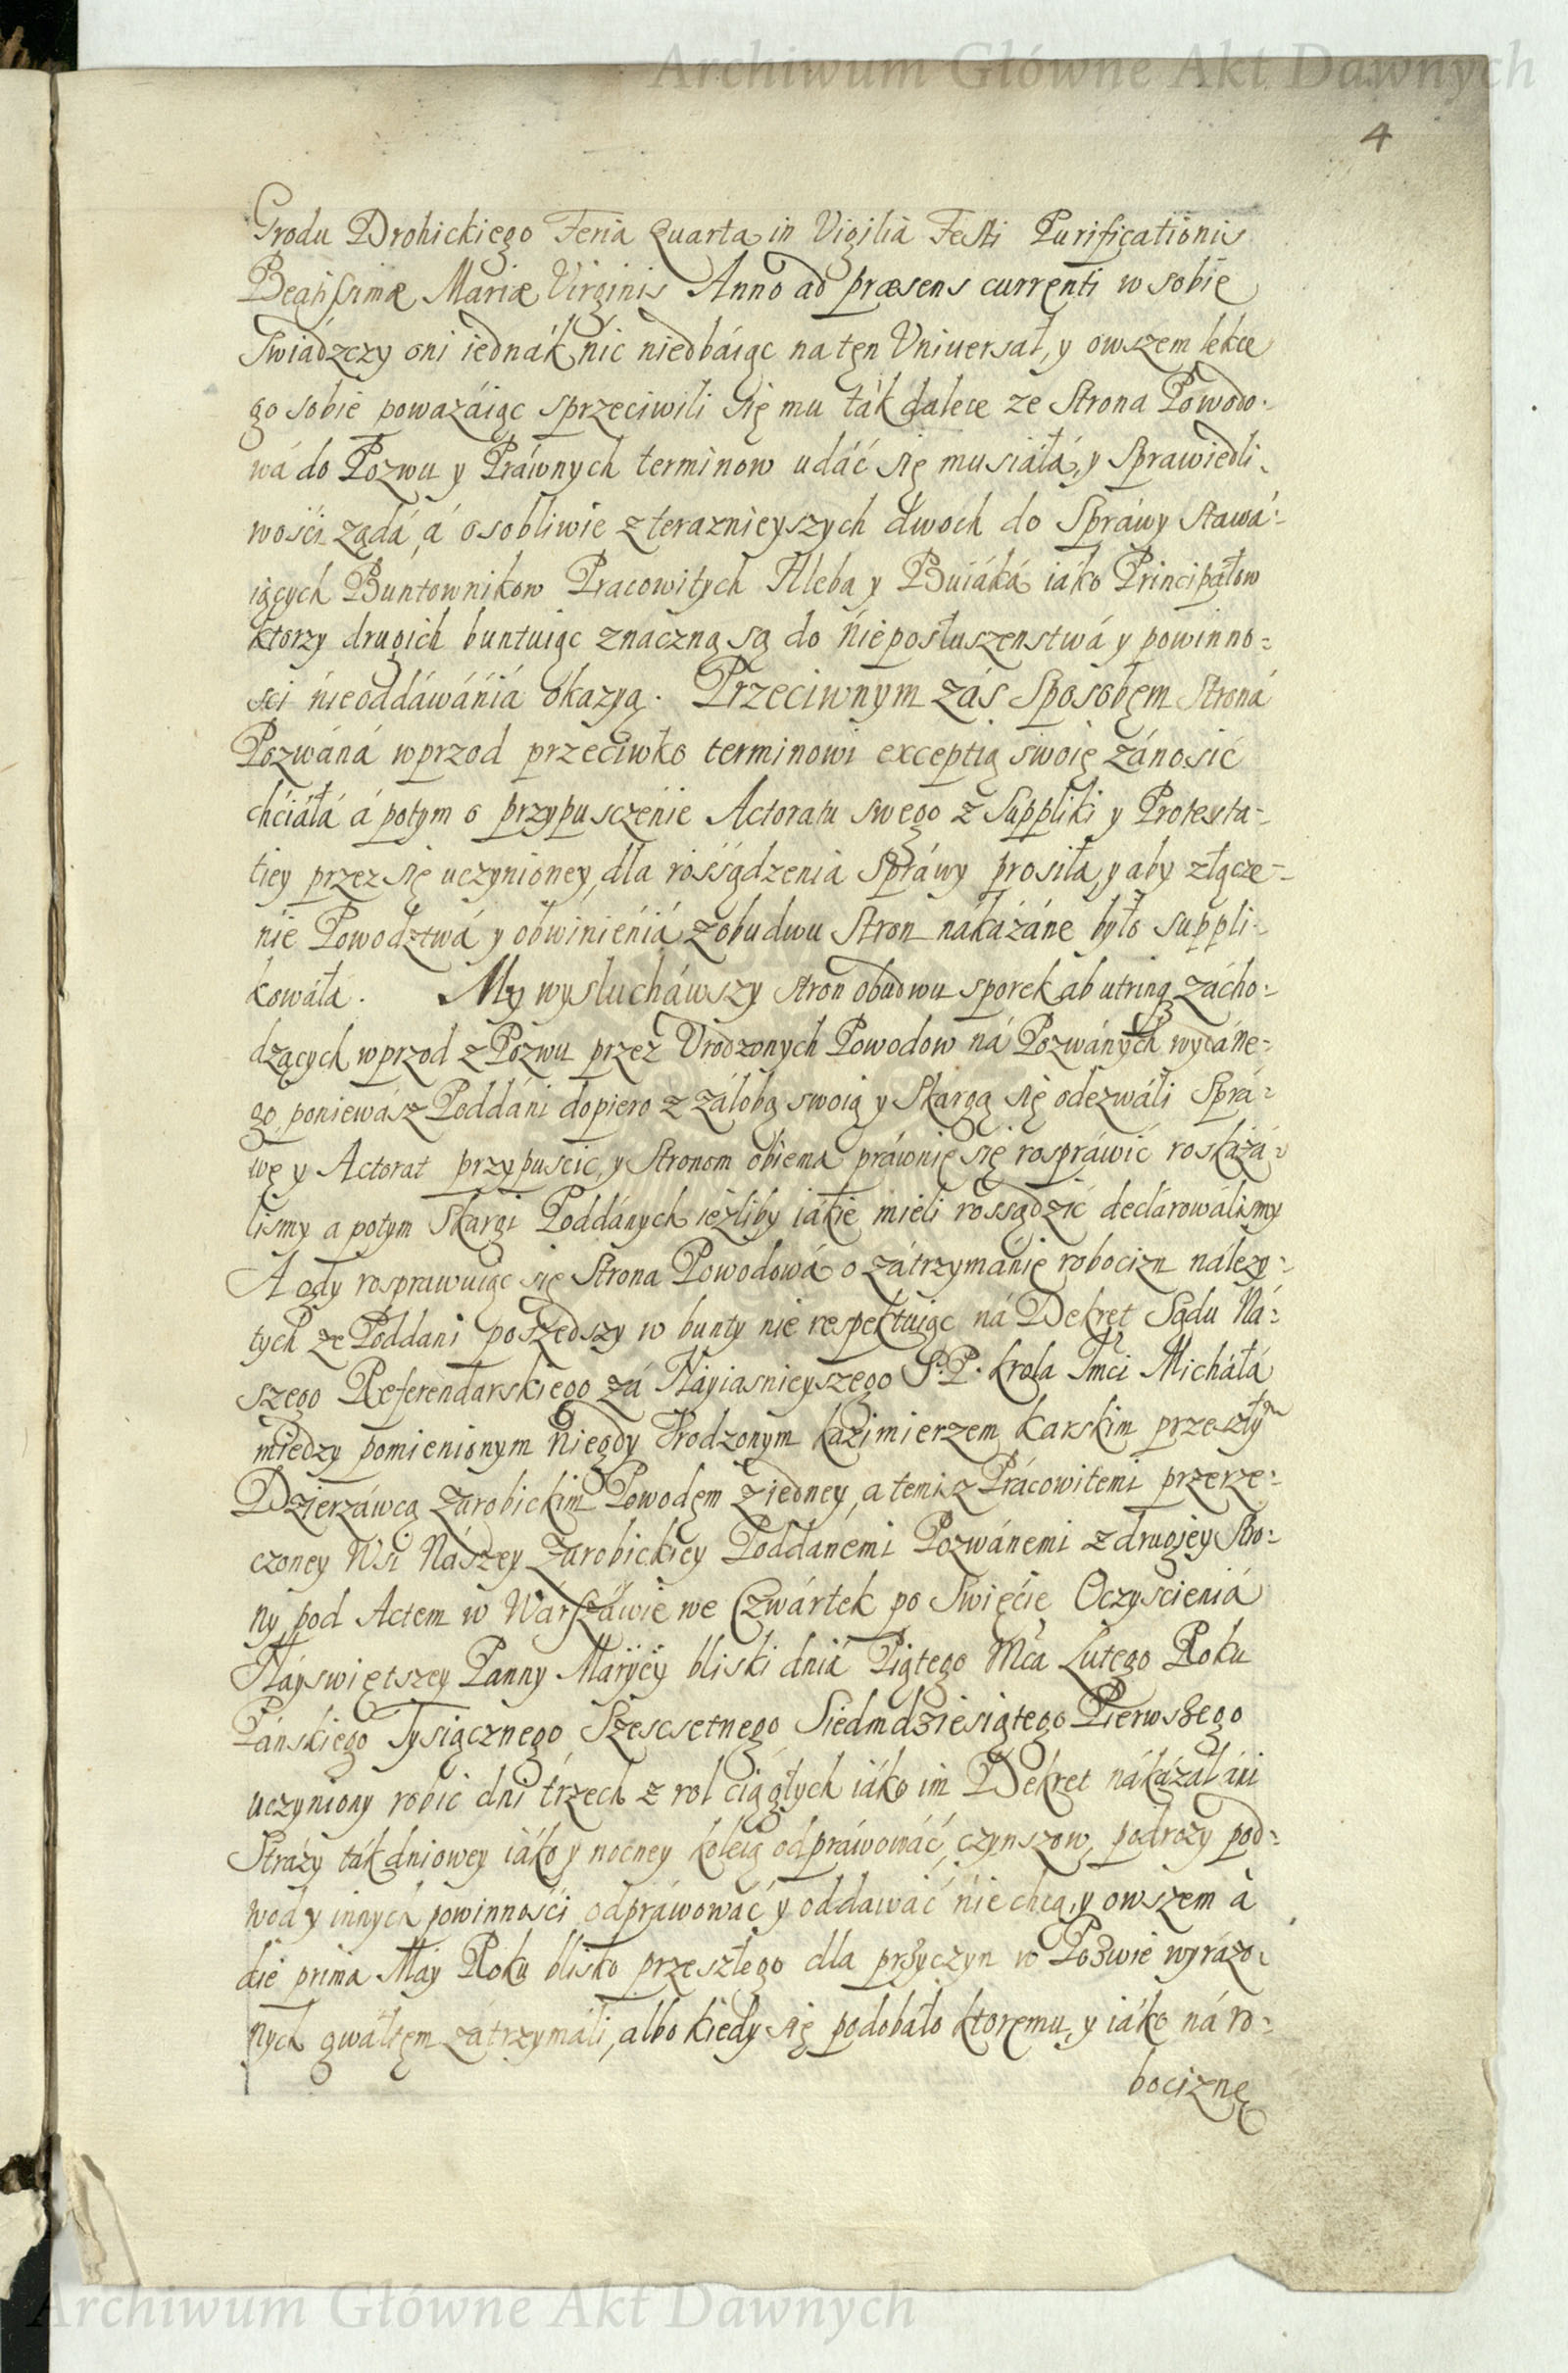 Archiwum Główne Akt Dawnych
4
Grodu Drohickiego Feria Quarta in Vigilia Festi Purificationis
Beatissimæ Mariæ Virginis Anno ad præsens currenti w sobie
Swiádzczy oni iednák nic niedbáiąc na tęn Vniuersał, y owszem lekce
go sobie powazáiąc sprzeciwili się mu ták dalece ze Strona Powodo-
wá do Pozwu y Práwnych terminow udáć się musiáłá, y Sprawiedli-
wości ząda, á osobliwie z teraznieyszych dwoch do Spráwy Stawá-
iących Buntownikow Pracowitych Hleba y Buiáká iáko Principałow
ktorzy drugich buntuiąc znaczną są do nieposłuszenstwá y powinno-
sci nieoddáwániá okazyą. Przeciwnym záś Sposobęm Stroná
Pozwáná wprzod przeciwko terminowi exceptią swoię zánosić
chciáłá á potym o przypusczenie Actoratu swego z Suppliki y Protesta-
tiey przez się uczynioney, dla rossądzenia Spráwy prosiła, y aby złącze-
nie Powodztwá y obwinieniá z obudwu Stron nákázáne było suppli-
kowáłá. My wysłucháwszy stron obudwu sporek ab utrinq zácho-
dzących, wprzod z Pozwu przez Vrodzonych Powodow ná Pozwánych wydáne-
go, poniewász Poddáni dopiero z záłobą swoią y Skargą się odezwáli Sprá-
wę y Actorat przypuscic, y Stronom obiema práwnie się rospráwić roskázá-
lismy a potym Skargi Poddánych ieźliby iákie mieli rossądzić declárowálismy
A gdy rosprawuiąc się Strona Powodowá o zátrzymánie robocizn nálezy-
tych ze Poddani poszedszy w bunty nie respektuiąc ná Dekret Sądu Ná-
szego Referendarskiego zá Náyiasnieyszego S. P. krola Jmci Micháłá
miedzy pomienionym niegdy Vrodzonym kazimierzem karskim przeszłym
Dzierzáwcą Zarobickim Powodęm z iedney, a temi z Prácowitemi przerze-
czoney Wsi Nászey Zarobickiey Poddánemi Pozwánemi z drugiey Stro-
ny, pod Actem w Wárszáwie we Czwártek po Swięcie Oczyscieniá
Náyswiętszey Panny Maryey bliski dniá Piątego Mca Lutego Roku
Páńskiego Tysiącznego Szescsetnego Siedmdziesiątego Pierwszego
uczyniony robic dni trzech z rol ciągłych iáko im Dekret nákázał áni
Strázy ták dniowey iáko y nocney koleią odpráwowáć, czynszow, podrozy pod-
wod y innych powinności odpráwowáć y oddawáć nie chcą, y owszem à
die prima May Roku blisko przeszłego dla przyczyn w Pozwie wyrázo-
nych gwałtęm zátrzymáli, albo kiedy się podobáło ktoremu, y iáko ná ro-
bociznę
Archiwum Główne Akt Dawnych